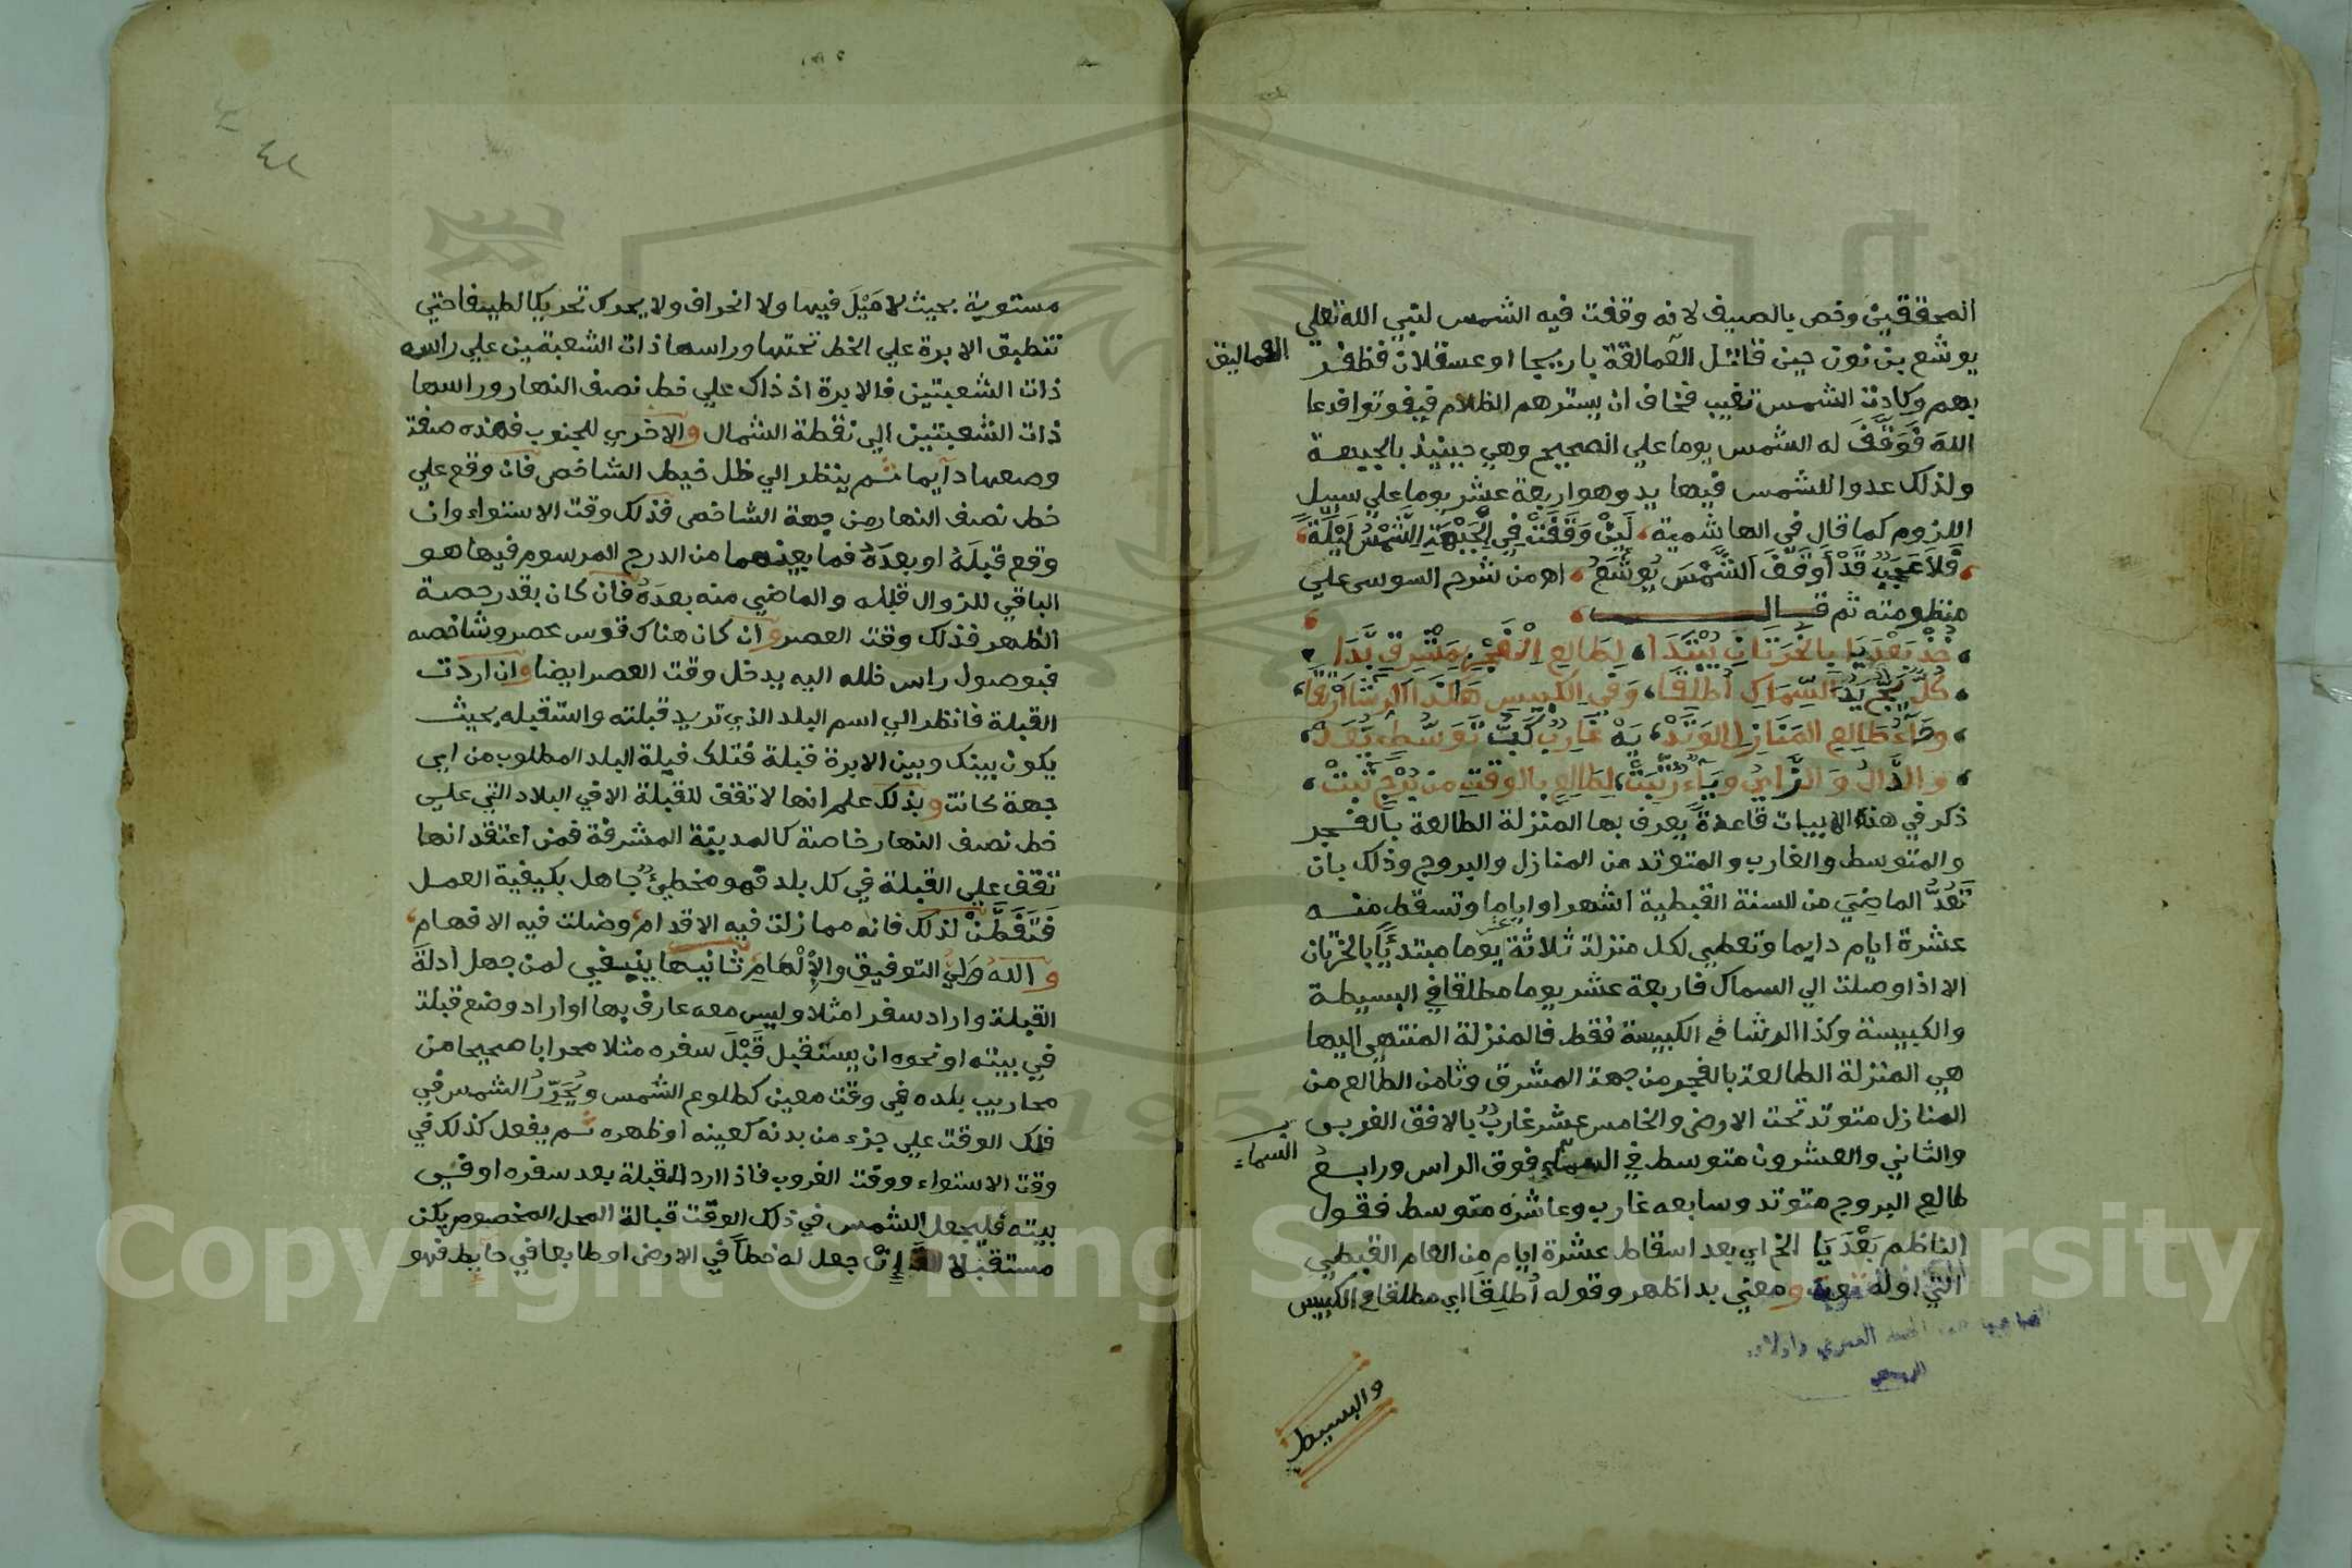 المحققين وخص بالصيف لانه وقفت فيه الشمس لنبي الله تعلي
يوشع بن نون حين قاتل العمالقة باريحا او عسقلان فظفر
العماليق
بهم وكادت الشمس تغيب فخاف ان يسترهم الظلام فيفوتوا فدعا
الله فَوَقَّفَ له الشمس يوما علي الصحيح وهي حينيذ بالجبهة
ولذلك عدوا للشمس فيها يد وهو اربعة عشر يوما علي سبيل
اللزوم كما قال في الهاشمية لَئِنْ وَقَفَتْ فِي الْجَبْهَةِ الشَّمْسُ لَيْلَةً
فَلَا عَجَبٌ قَدْ أَوقَفَ الشَّمْسَ يُوشَعُ اهـ من شرح السوسى علي
منظومته ثم قال
خُذْ بَعْدَ يَا بالخَرَتَانِ يُبْتَدَا لِطَالِعِ الْفَجْرِ بِمَشْرِقٍ بَدَا
كُلٌّ بِجٍّ يَدُ السِّمَاكِ أُطْلِقَا وَفِي الكَبِيسِ هَكَذَا الرِّشَا
وحَاءُ طَالِعِ المَنَازِلِ الوَتَدْ يَهْ غَارِبٌ كَبٌّ تَوَسُّطٍ يُعَدّ
وَالدَّالُ وَالزَّايُ ويَاءٌ رُتِّبَتْ لِطَالِعٍ بالوَقْتِ من بُرْجٍ ثَبَتْ
ذكر في هذه الابيات قاعدةً يعرف بها المنزلة الطالعة بالفجر
والمتوسط والغارب والمتوتد من المنازل والبروج وذلك بان
تَعُدَّ الماضِيَ من السنة القبطية اشهرا واياما وتسقط منه
عشرة ايام دايما وتعطي لكل منزلة ثلاثة عشر يوما مبتدئًا بالخرتان
الا اذا وصلت الي السماك فاربعة عشر يوما مطلقا في البسيطة
والكبيسة وكذا الرشا في الكبيسة فقط فالمنزلة المنتهي اليها
هي المنزلة الطالعة بالفجر من جهة المشرق وثامن الطالع من
المنازل متوتد تحت الارض والخامس عشر غاربٌ بالافق الغربى
والثاني والعشرون متوسط في السماء فوق الراس ورابع
السماء
طالع البروج متوتد وسابعه غارب وعاشره متوسط فقول
الناظم بَعْدَ يَا الخ اي بعد اسقاط عشرة ايام من العام القبطي
التي اوله توت ومعني بدا ظهر وقوله أُطلِقَا اي مطلقا في الكبيس
والبسيط
مستوية بحيث لا مَيْلَ فيها ولا انحراف ولا يحرك تحريكا لطيفا حتي
تنطبق الابرة علي الخط تحتها وراسها ذات الشعبتين علي راس
ذات الشعبتين فالابرة اذ ذاك علي خط نصف النهار وراسها
ذات الشعبتين الي نقطة الشمال والاخري للجنوب فهذه صفة
وضعها دآيما ثم ينظر الي ظل خيط الشاخص فان وقع علي
خط نصف النهار من جهة الشاخص فذلك وقت الاستواء وان
وقع قبلَهُ او بعدَهُ فما بينهما من الدرج المرسوم فيها هو
الباقي للزوال قبله والماضي منه بعدَهُ فان كان بقدر حصة
الظهر فذلك وقت العصر وان كان هناك قوس عصر وشاخصه
فبوصول راس ظله اليه يدخل وقت العصر ايضا وان اردت
القبلة فانظر الي اسم البلد الذي تريد قبلته واستقبله بحيث
يكون بينك وبين الابرة قبلة فتلك قبلة البلد المطلوب من اي
جهة كانت وبذلك علم انها لا تقف للقبلة الا في البلاد التي علي
خط نصف النهار خاصة كالمدينة المشرفة فمن اعتقد انها
تقف علي القبلة في كل بلد فهو مخطئٌ جاهل بكيفية العمل
فَتَفَطَّنْ لذلك فانه مما زلت فيه الاقدام وضلت فيه الافهام
والله وَلِيُّ التوفيقِ والإلْهَامِ ثانيها ينبغي لمن جهل أدلةَ
القبلة واراد سفرا مثلا وليس معه عارف بها او اراد وضع قبلة
في بيته او نحوه ان يستقبل قَبْلَ سفره مثلا محرابا صحيحا من
محاريب بلده في وقت معين كطلوع الشمس ويُحَرِّرُ الشمس في
ذلك الوقت علي جزء من بدنه كعينه او ظهره ثم يفعل كذلك في
وقت الاستواء ووقت الغروب فاذا اراد القبلة بعد سفره او في
بيته فليجعل الشمس في ذلك الوقت قبالة المحل المخصوص يكن
مستقبلا إنْ جعل له خطاً في الارض او طابعا في حايط فهو
٤٢
Copyright © King Saud University
1957